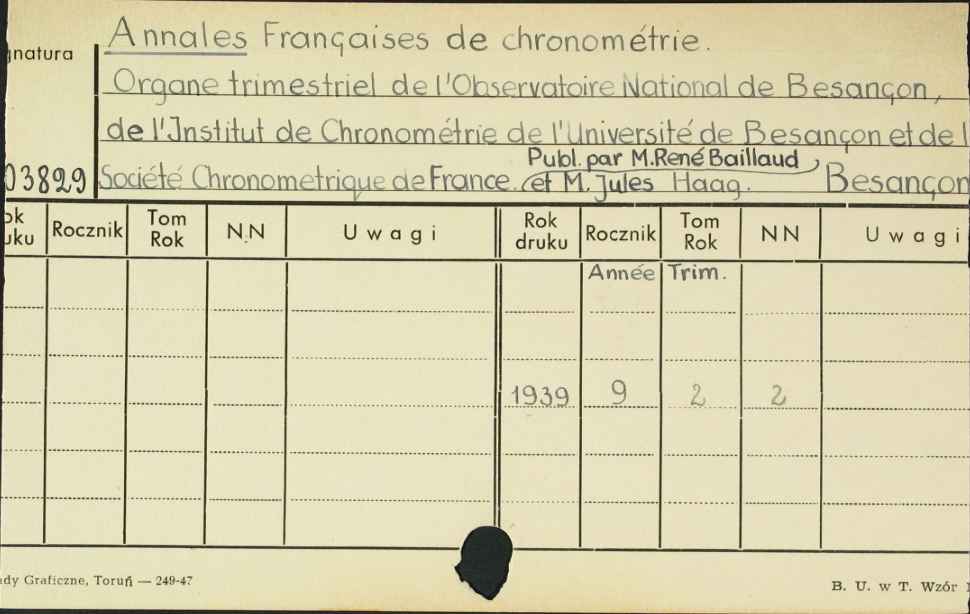 Annales Françaises de chronométrie.
gnatura
Organe trimestriel de l'Observatoire National de Besançon,
de l'Institut de Chronométrie de l'Université de Besançon et de l
Publ. par M. René Baillaud
03829 Société Chronometrique de France. et M. Jules Haag. Besançon
ok uku Rocznik Tom Rok N.N Uwagi Rok druku Rocznik Tom Rok NN Uwagi
Année Trim.
1939 9 2 2
dy Graficzne, Toruń — 249-47
B. U. w T. Wzór